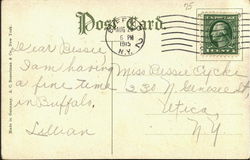 75
Post Card.
BUFFALO
AUG
6 PM
1915
N.Y.
2
Dear Bessie
I am having
a fine time
in Buffalo.
Lillian
Miss Bessie
230 N. Genesee St
Utica
N.Y
Made in Germany.
New York.